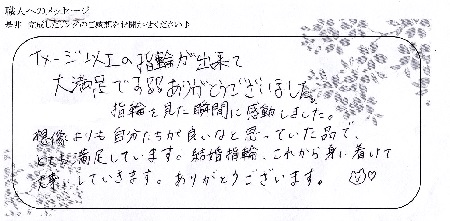 職人へのメッセージ
是非、完成したリングのご感想をお聞かせください♪
イメージ以上の指輪が出来て
大満足です!!ありがとうございました。
指輪を見た瞬間に感動しました。
想像よりも自分たちが良いなと思っていた品で、
とても満足しています。結婚指輪、これから身に着けて
していきます。ありがとうございます。